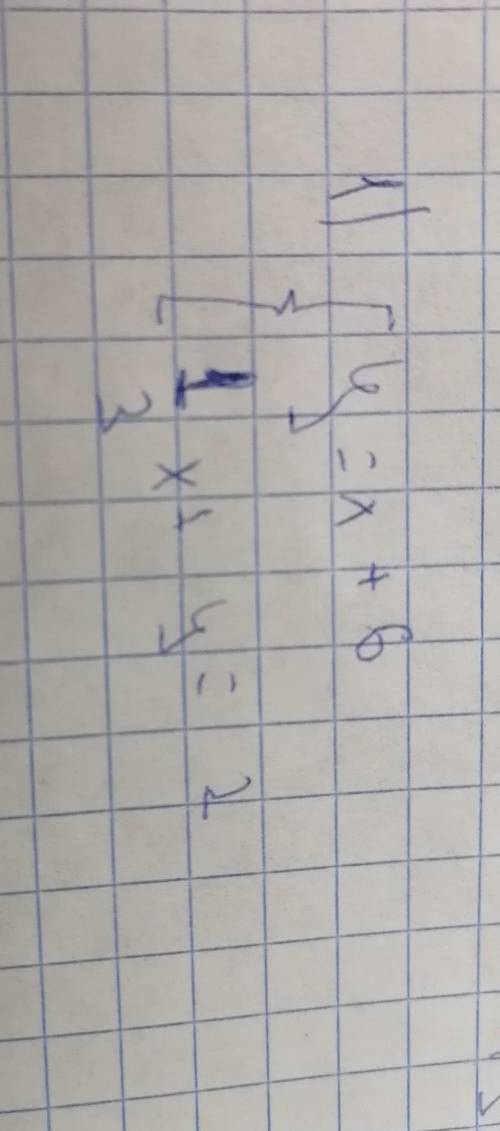 1)
{ y = x + 6
1/3 x + y = 2